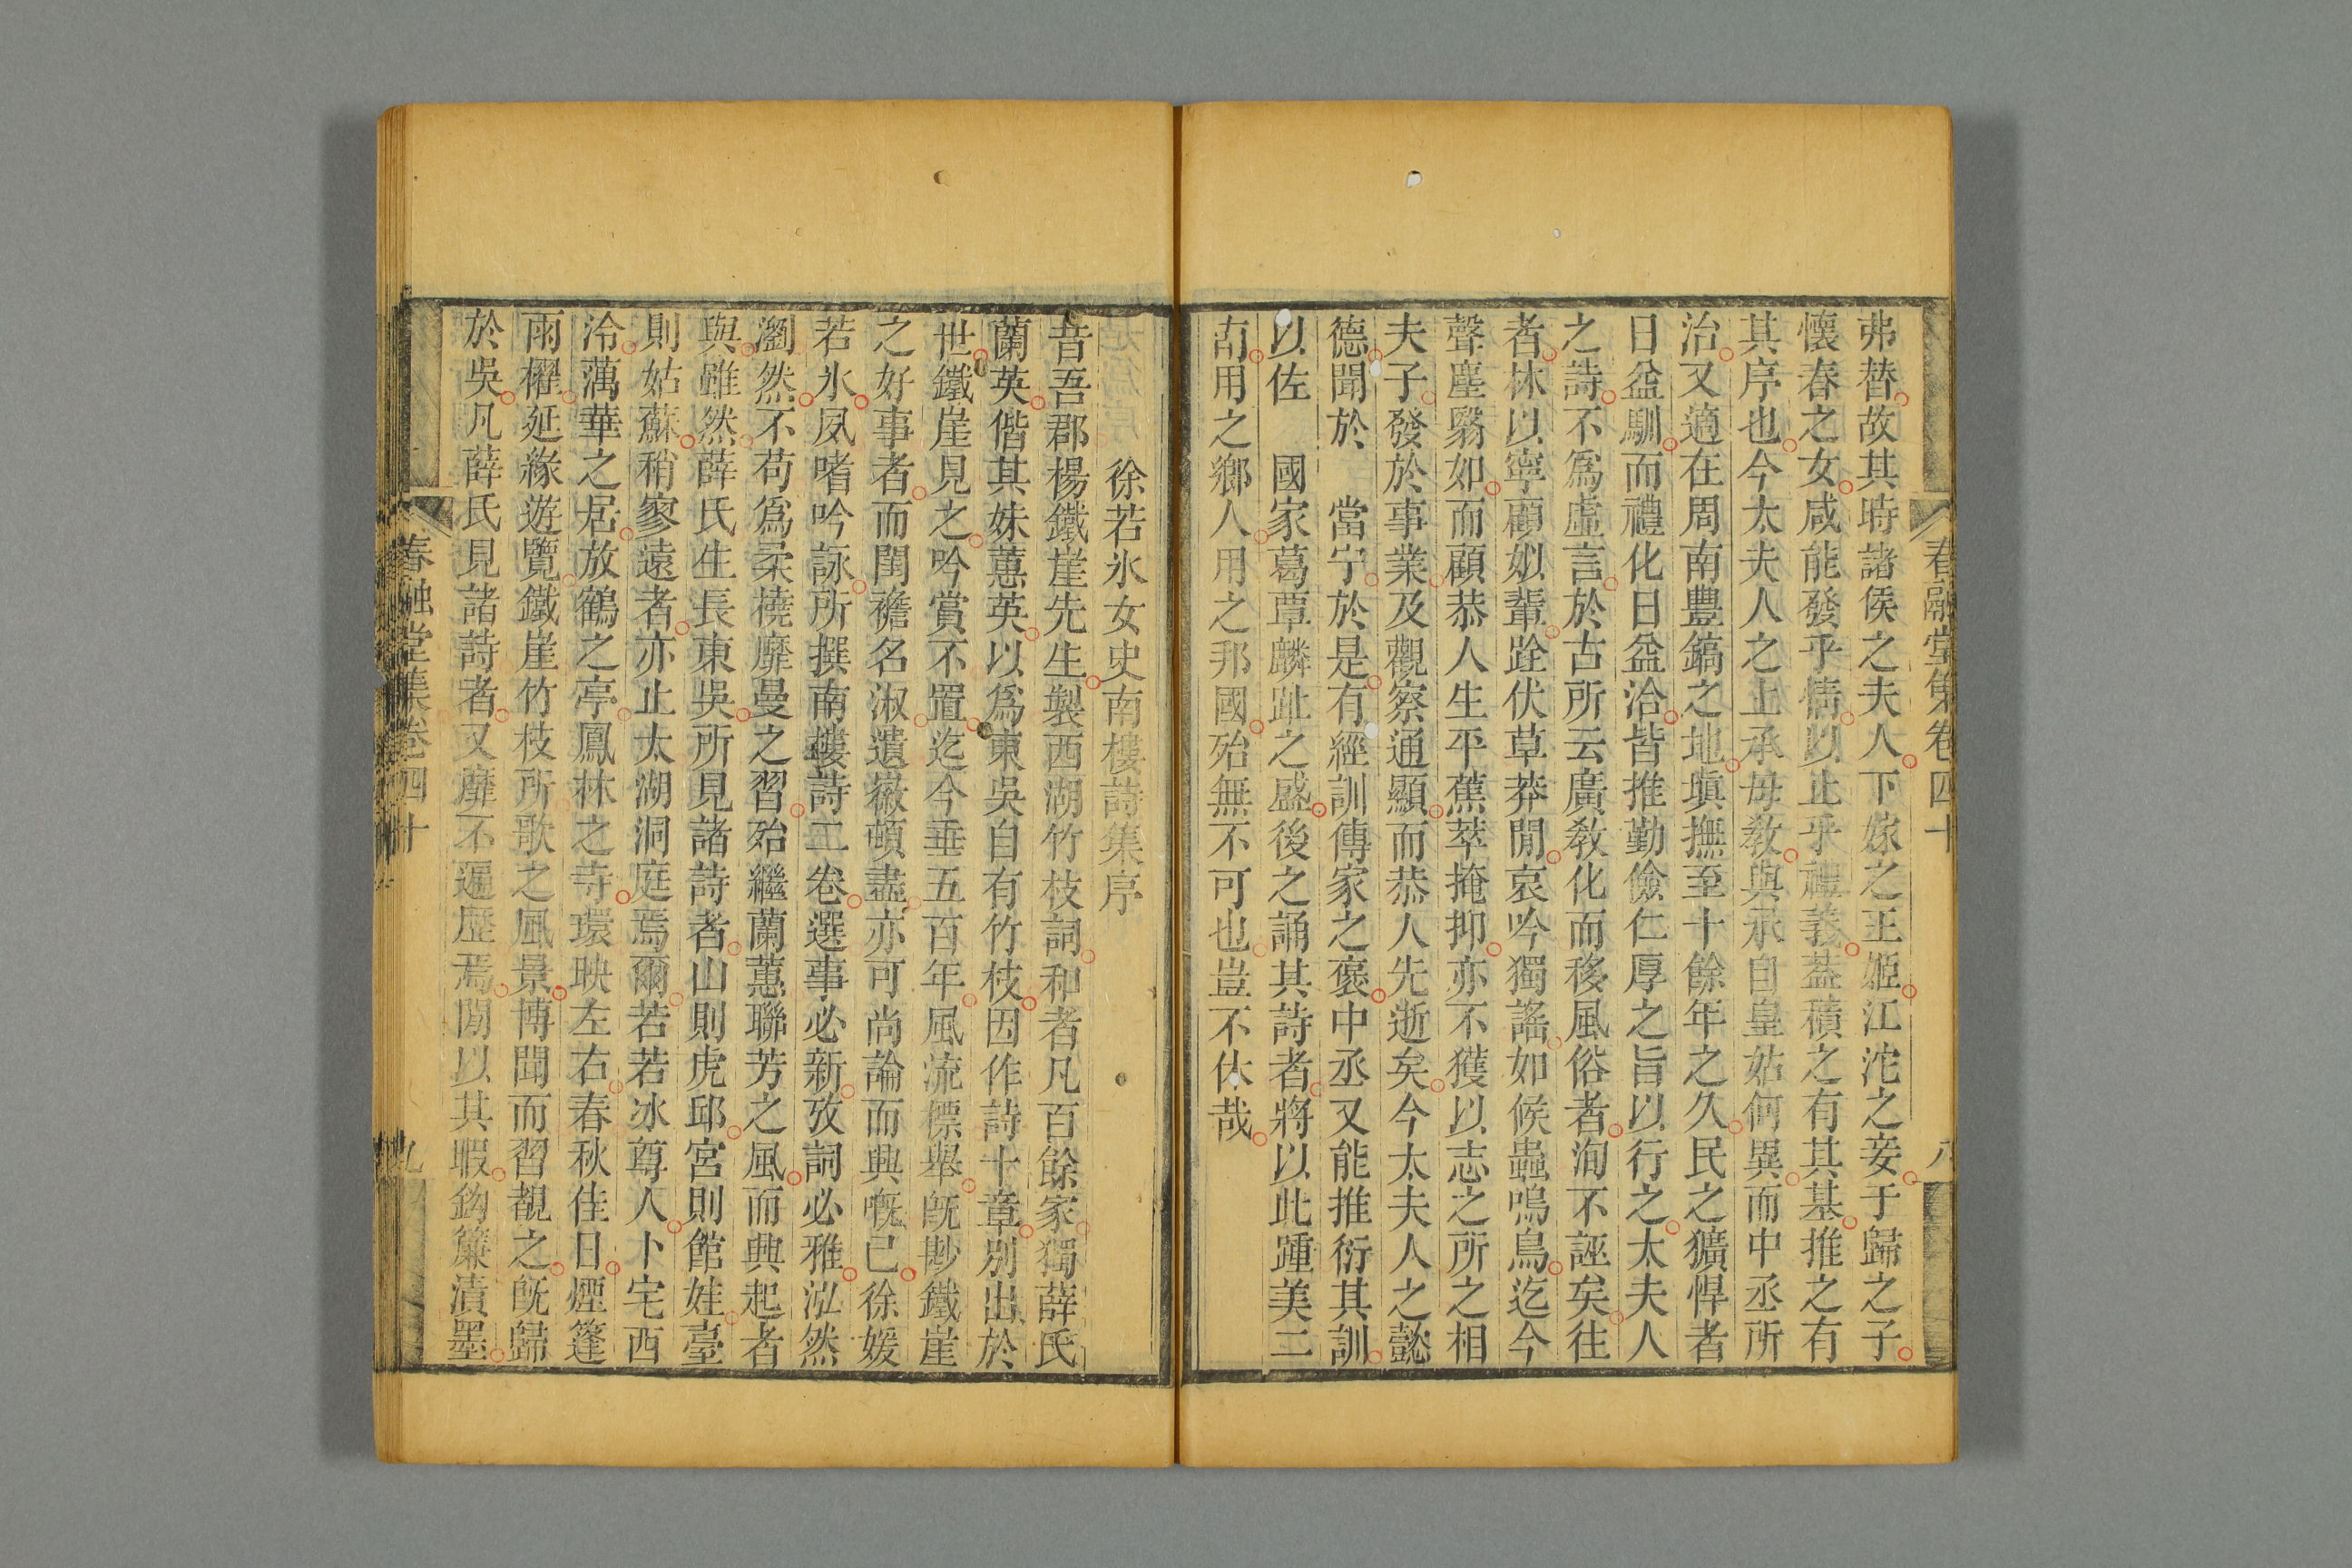 春融堂集卷四十
八
弗替故其時諸侯之夫人下嫁之王姬江沱之妾于歸之子
懷春之女咸能發乎情以止乎禮義葢積之有其基推之有
其序也今太夫人之上承母敎與承自皇姑何異而中丞所
治又適在周南豐鎬之地塡撫至十餘年之久民之獷悍者
日益馴而禮化日益洽皆推勤儉仁厚之旨以行之太夫人
之詩不爲虛言於古所云廣敎化而移風俗者洵不誣矣往
者林以寧顧姒輩跧伏草莽閒哀吟獨謠如候蟲鳴鳥迄今
聲塵翳如而顧恭人生平蕉萃掩抑亦不獲以志之所之相
夫子發於事業及觀察通顯而恭人先逝矣今太夫人之懿
德聞於 當宁於是有經訓傳家之褒中丞又能推衍其訓
以佐 國家葛覃麟趾之盛後之誦其詩者將以此踵美二
南用之鄉人用之邦國殆無不可也豈不休哉
徐若氷女史南樓詩集序
昔吾郡楊鐵崖先生製西湖竹枝詞和者凡百餘家獨薛氏
蘭英偕其妹蕙英以爲東吳自有竹枝因作詩十章別出於
世鐵崖見之吟賞不置迄今垂五百年風流標舉旣尠鐵崖
之好事者而閨襜名淑遺徽頓盡亦可尚論而興嘅已徐媛
若氷夙嗜吟詠所撰南樓詩二卷選事必新攷詞必雅泓然
瀏然不苟爲柔橈靡曼之習殆繼蘭蕙聯芳之風而興起者
與雖然薛氏生長東吳所見諸詩者山則虎邱宮則館娃臺
則姑蘇稍寥遠者亦止太湖洞庭焉爾若若冰尊人卜宅西
泠藕華之居放鶴之亭鳳林之寺環映左右春秋佳日煙篷
雨櫂延緣遊覽鐵崖竹枝所歌之風景博聞而習覩之旣歸
於吳凡薛氏見諸詩者又靡不遍歷焉閒以其暇鉤簾漬墨
春融堂集卷四十
九